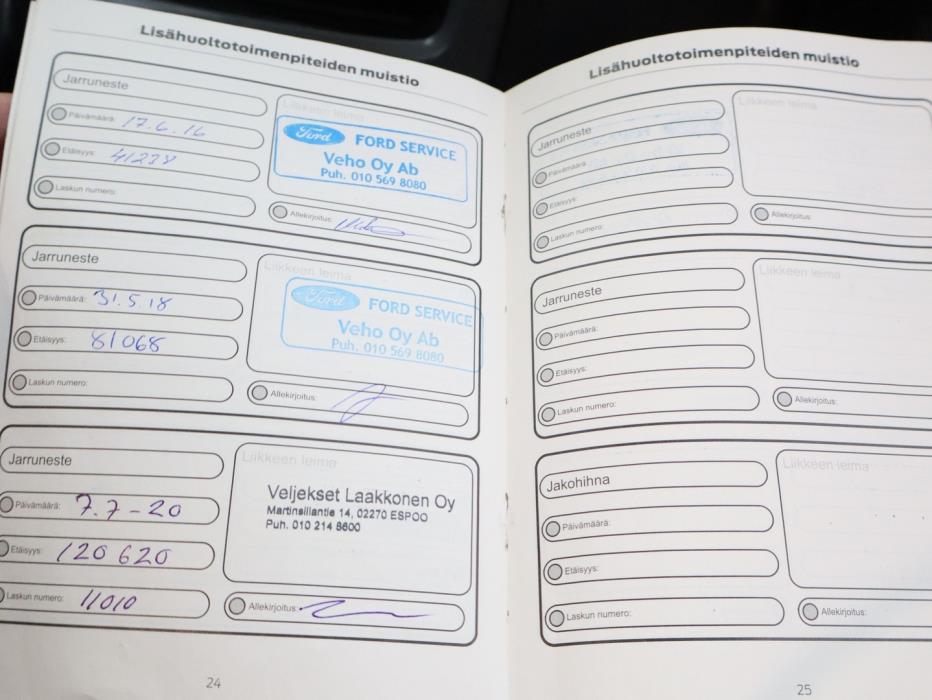 Lisähuoltotoimenpiteiden muistio
Jarruneste
Päivämäärä: 17.6.16
Etäisyys: 41238
Laskun numero:
Liikkeen leima
Ford FORD SERVICE
Veho Oy Ab
Puh. 010 569 8080
Allekirjoitus:
Jarruneste
Päivämäärä: 31.5.18
Etäisyys: 81068
Laskun numero:
Liikkeen leima
Ford FORD SERVICE
Veho Oy Ab
Puh. 010 569 8080
Allekirjoitus:
Jarruneste
Päivämäärä: 7.7-20
Etäisyys: 120 620
Laskun numero: 11010
Liikkeen leima
Veljekset Laakkonen Oy
Martinsillantie 14, 02270 ESPOO
Puh. 010 214 8600
Allekirjoitus:
24
Lisähuoltotoimenpiteiden muistio
Jarruneste
Päivämäärä:
Etäisyys:
Laskun numero:
Liikkeen leima
Allekirjoitus:
Jarruneste
Päivämäärä:
Etäisyys:
Laskun numero:
Liikkeen leima
Allekirjoitus:
Jakohihna
Päivämäärä:
Etäisyys:
Laskun numero:
Liikkeen leima
Allekirjoitus:
25